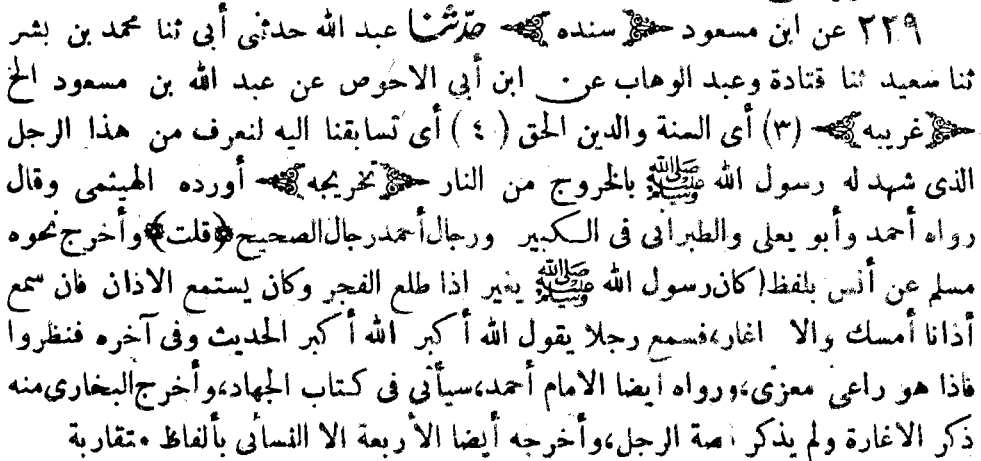 ٢٣٩ عن ابن مسعود ﴿ سنده ﴾ حدّثنا عبد الله حدثنى أبى ثنا محمد بن بشر
ثنا سعيد ثنا قتادة وعبد الوهاب عن ابن أبي الاحوص عن عبد الله بن مسعود الخ
﴿ غريبه ﴾ (٣) أى السنة والدين الحق (٤) أى تسابقنا اليه لنعرف من هذا الرجل
الذى شهد له رسول الله ﷺ بالخروج من النار ﴿ تخريجه ﴾ أورده الهيثمى وقال
رواه أحمد وأبو يعلى والطبرانى فى الكبير ورجال أحمد رجال الصحيح ﴿قلت﴾ وأخرج نحوه
مسلم عن أنس بلفظ (كان رسول الله ﷺ يغير اذا طلع الفجر وكان يستمع الاذان فان سمع
أذانا أمسك والا اغار، فسمع رجلا يقول الله أكبر الله أكبر الحديث وفى آخره فنظروا
فاذا هو راعى معزى، ورواه أيضا الامام أحمد، سيأتى فى كتاب الجهاد، وأخرج البخارى منه
ذكر الاغارة ولم يذكر قصة الرجل، وأخرجه أيضا الأربعة الا النسائى بألفاظ متقاربة